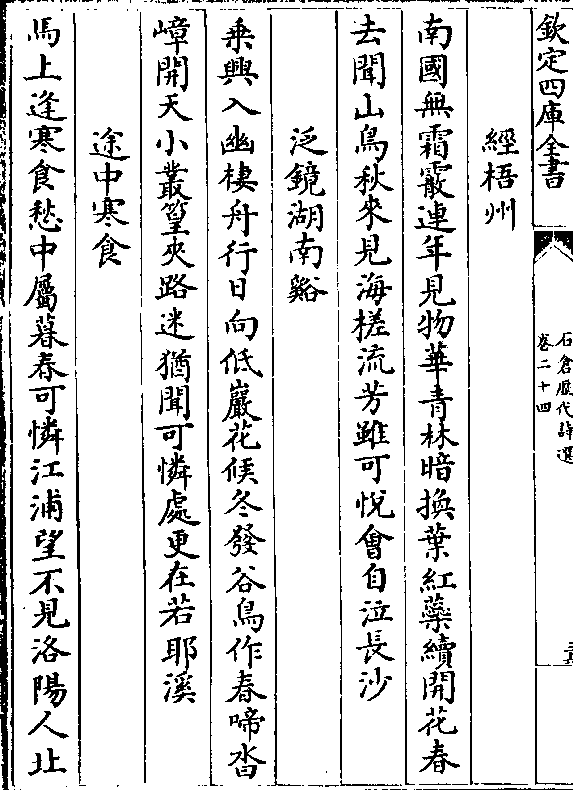 欽定四庫全書
石倉歷代詩選
卷二十四
經梧州
南國無霜霰連年見物華青林暗換葉紅蘂續開花春
去聞山鳥秋來見海槎流芳雖可悅會自泣長沙
泛鏡湖南谿
乗興入幽棲舟行日向低巖花候冬發谷鳥作春啼沓
嶂開天小叢篁夾路迷猶聞可憐處更在若耶溪
途中寒食
馬上逢寒食愁中屬暮春可憐江浦望不見洛陽人北